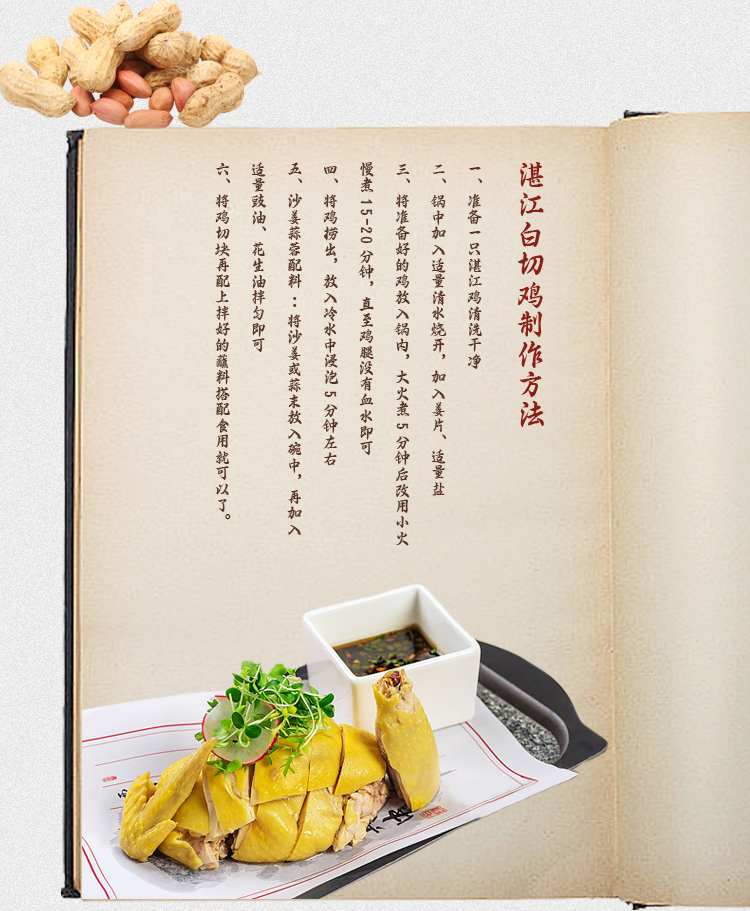 湛江白切鸡制作方法
一、准备一只湛江鸡清洗干净
二、锅中加入适量清水烧开，加入姜片、适量盐
三、将准备好的鸡放入锅内，大火煮5分钟后改用小火
慢煮15-20分钟，直至鸡腿没有血水即可
四、将鸡捞出，放入冷水中浸泡5分钟左右
五、沙姜蒜蓉配料：将沙姜或蒜末放入碗中，再加入
适量豉油、花生油拌匀即可
六、将鸡切块再配上拌好的蘸料搭配食用就可以了。